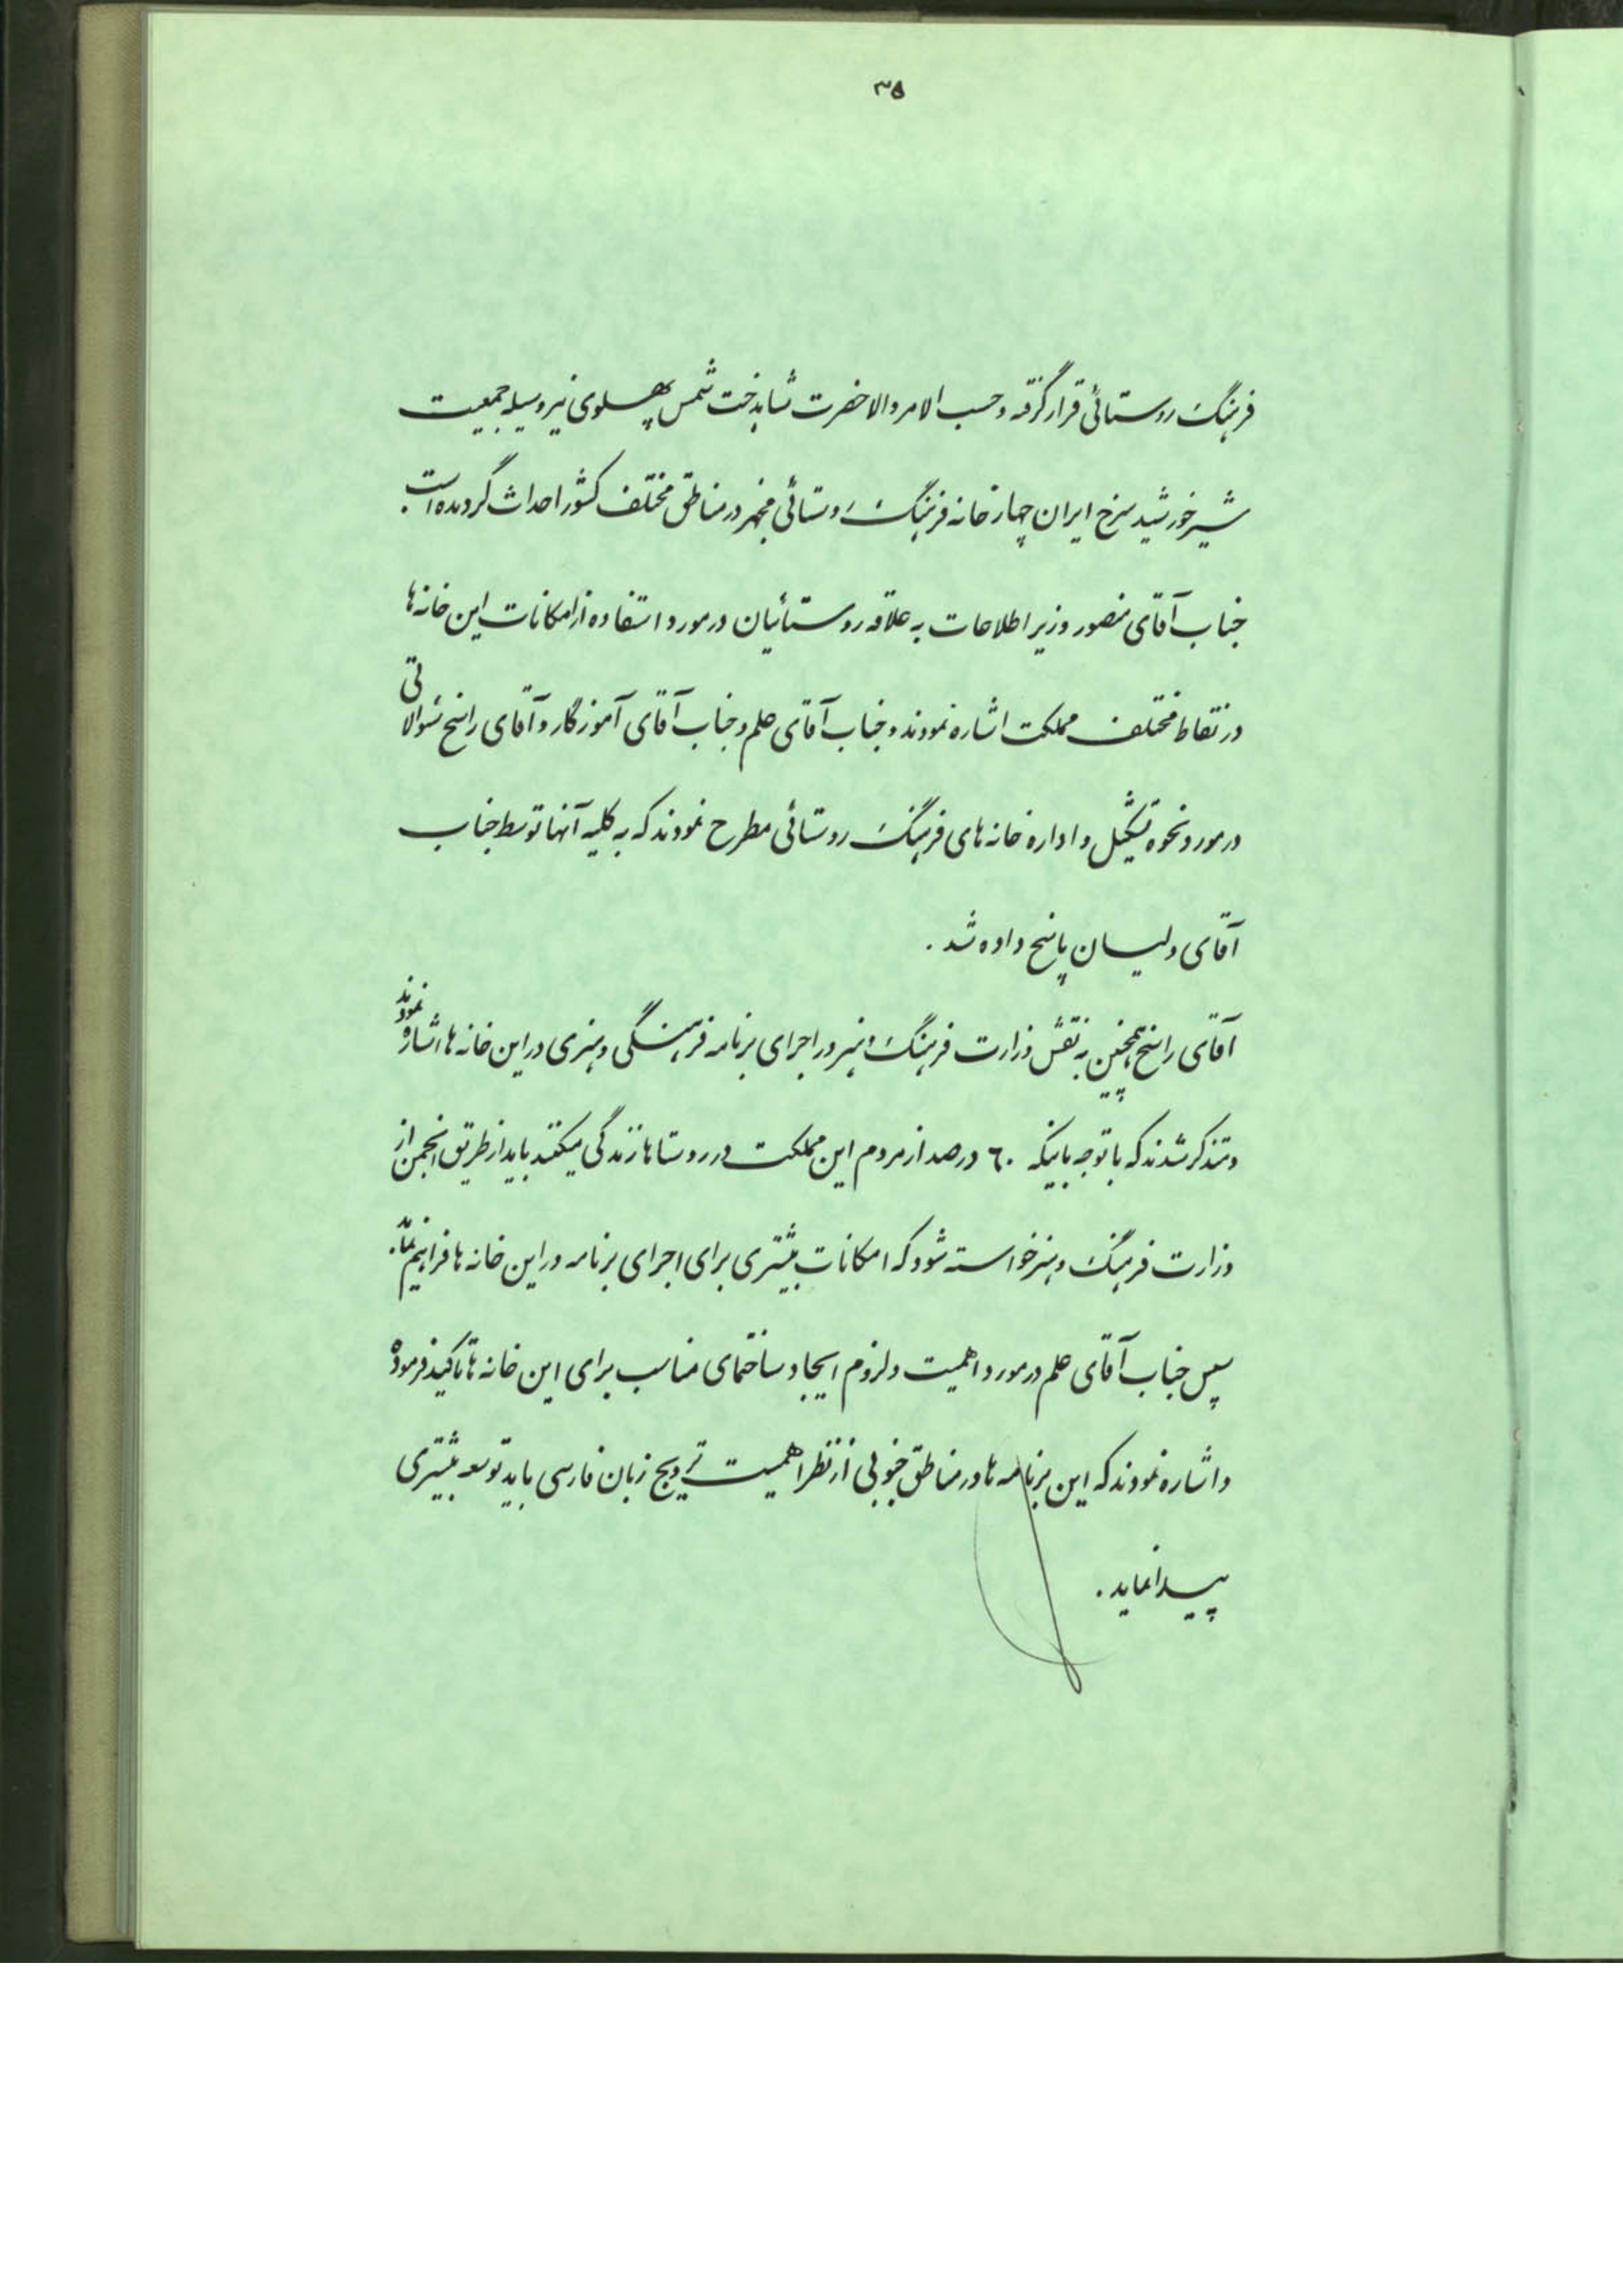 ۳۵
فرهنگ روستائی قرار گرفته و حسب الامر والاحضرت شاهدخت شمس پهلوی نیز وسیله جمعیت
شیر خورشید سرخ ایران چهار خانه فرهنگ روستائی مجهز در مناطق مختلف کشور احداث گردیده است.
جناب آقای منصور وزیر اطلاعات به علاقه روستائیان در مورد استفاده از امکانات این خانه‌ها
در نقاط مختلف مملکت اشاره نمودند و جناب آقای علم و جناب آقای آموزگار و آقای راسخ سئوالاتی
در مورد نحوه تشکیل و اداره خانه‌های فرهنگ روستائی مطرح نمودند که به کلیه آنها توسط جناب
آقای ولیان پاسخ داده شد.
آقای راسخ همچنین به نقش وزارت فرهنگ و هنر در اجرای برنامه فرهنگی و هنری در این خانه‌ها اشاره نمودند
و متذکر شدند که با توجه باینکه ۶۰ درصد از مردم این مملکت در روستاها زندگی میکنند باید از طریق انجمن از
وزارت فرهنگ و هنر خواسته شود که امکانات بیشتری برای اجرای برنامه در این خانه‌ها فراهم نماید.
سپس جناب آقای علم در مورد اهمیت و لزوم ایجاد ساختمانهای مناسب برای این خانه‌ها تاکید فرمودند
و اشاره نمودند که این برنامه‌ها در مناطق جنوبی از نظر اهمیت ترویج زبان فارسی باید توسعه بیشتری
پیدا نماید.